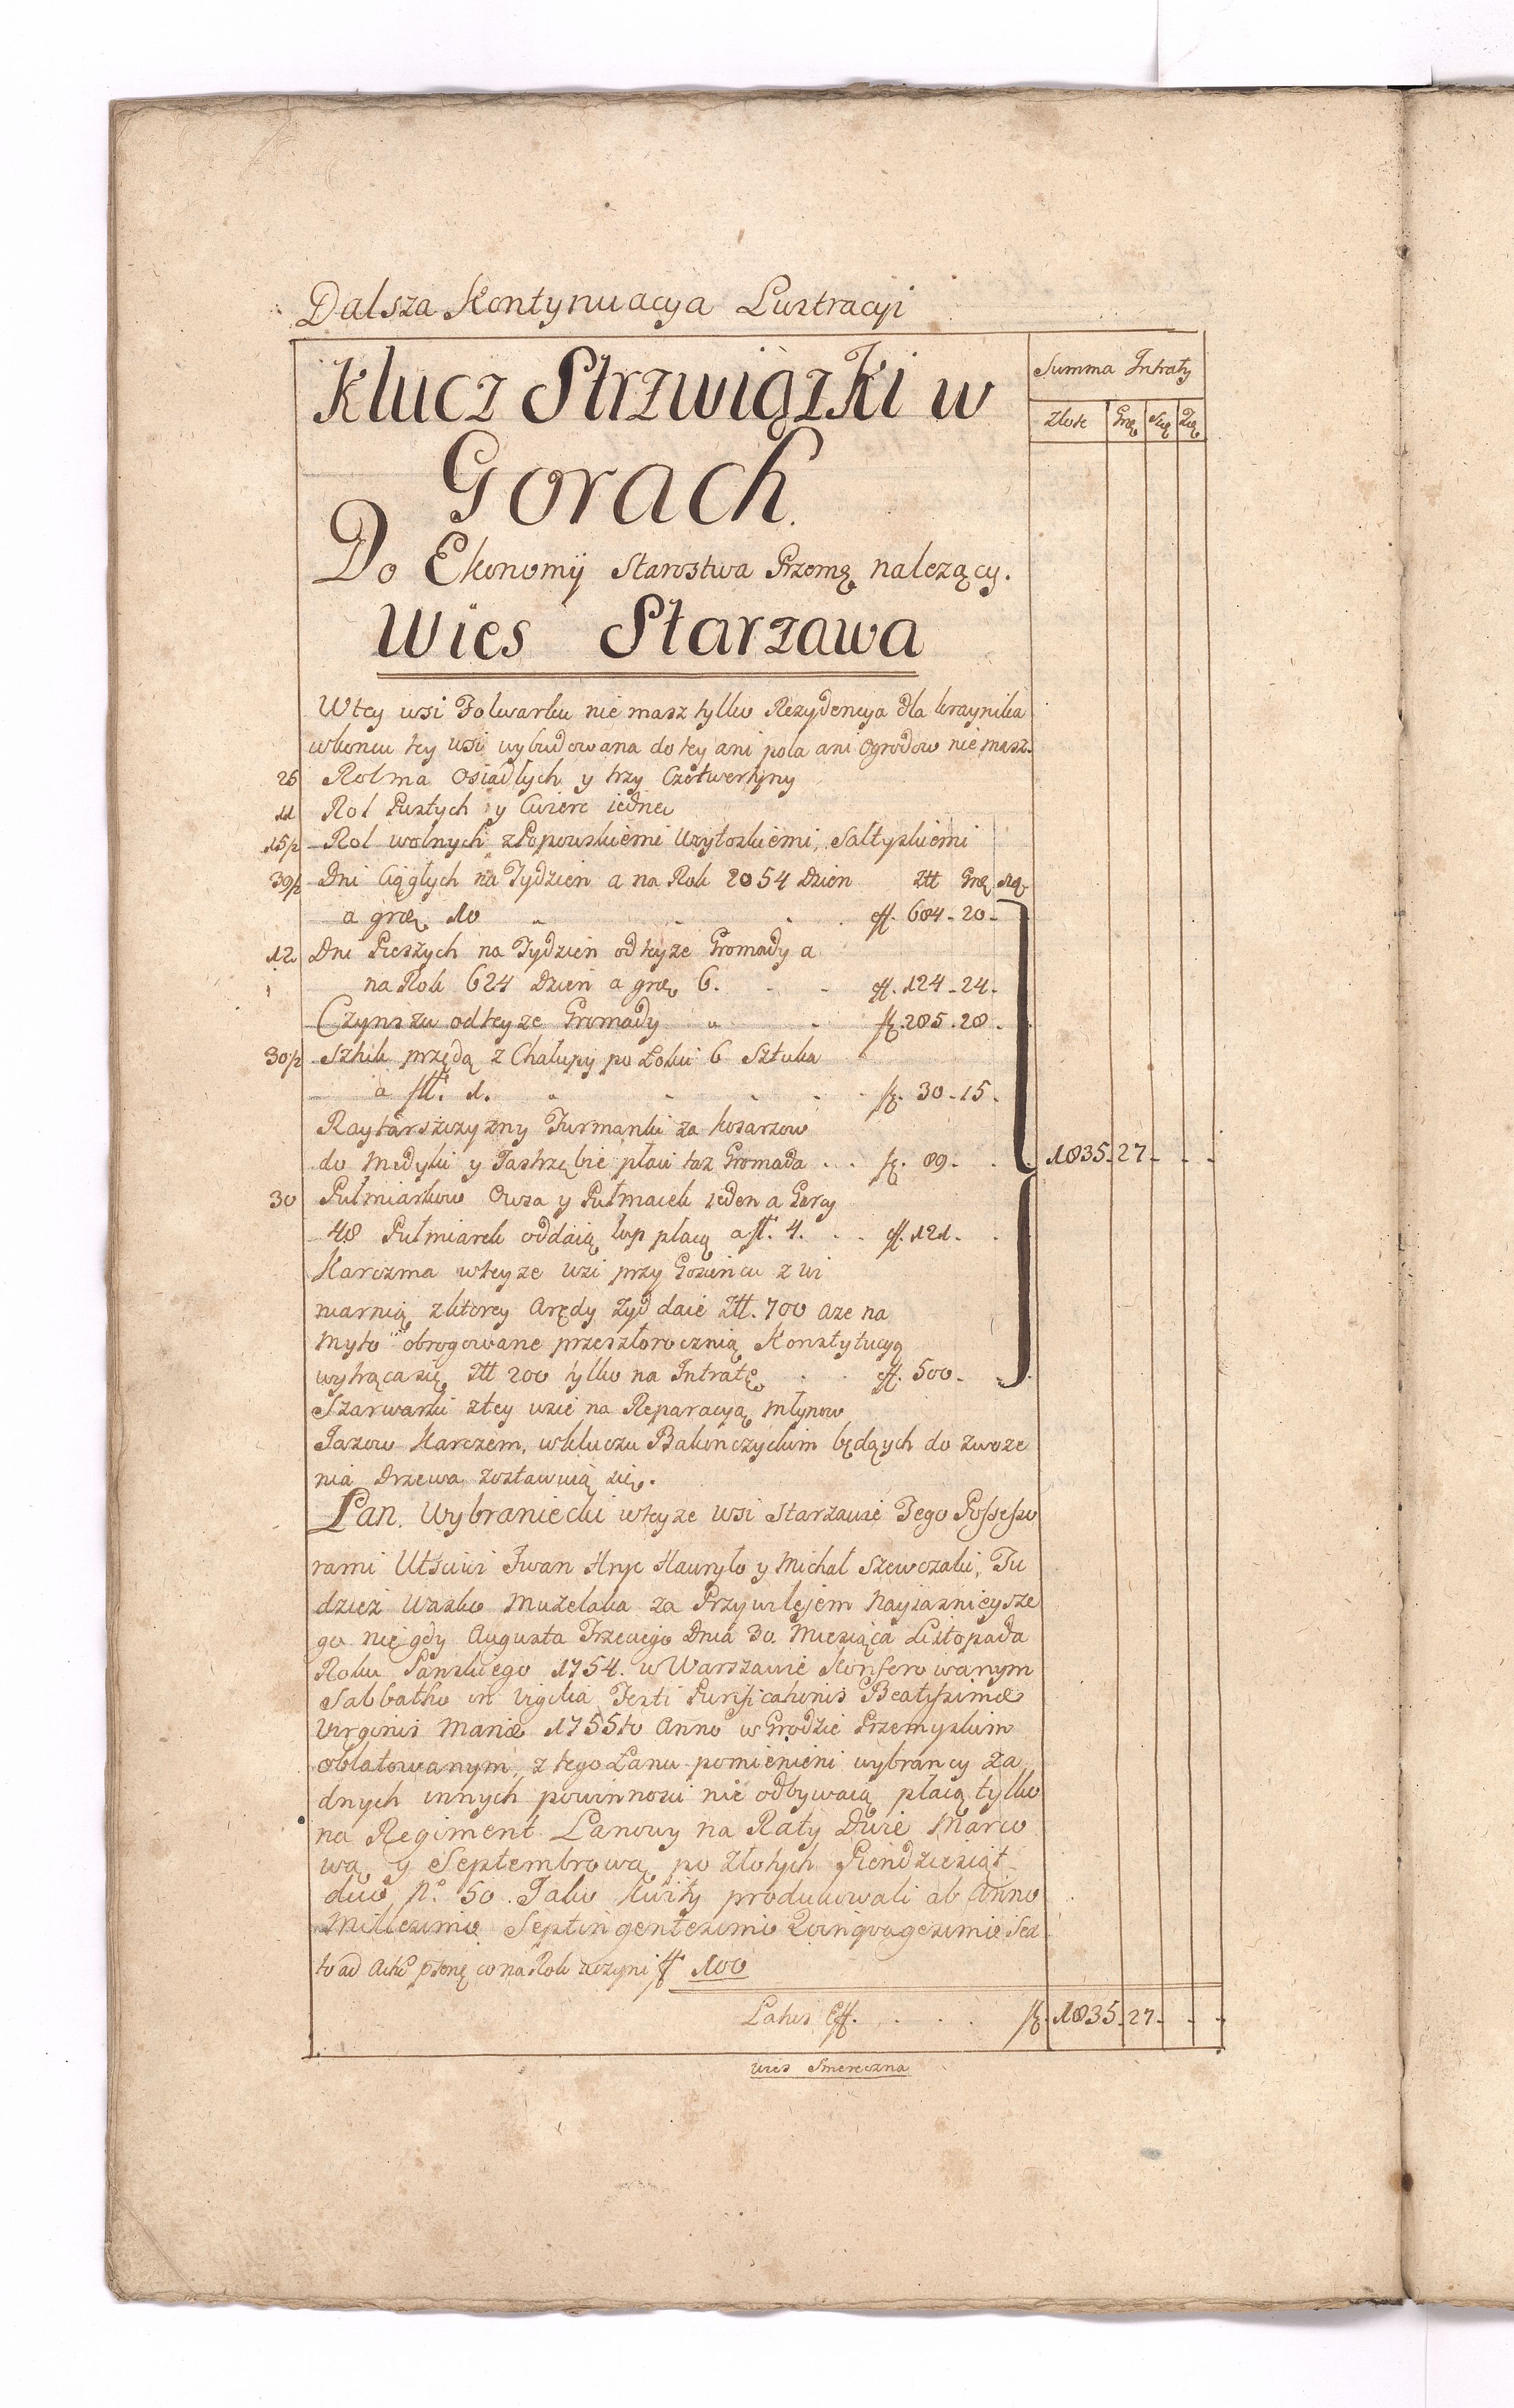 Dalsza Kontynuacya Lustracyi
Klucz Strzwiąszki w
Gorach.
Do Ekonomij Starostwa Przemę nalezący.
Wies Starzawa
Summa Intraty
Złote Grę Szę
W tey wsi Folwarku nie masz tylko Rezydencya dla kraynika
w koncu tey wsi wybudowana do tey ani pola ani Ogrodow nie masz.
26 Rol ma Osiadłych y trzy Czetwertyny
11 Rol Pustych y Cwierc iedna
15/2 Rol wolnych z Popowskiemi Uzytoskiemi, Sałtyskiemi
39/2 Dni Ciągłych na Tydzien a na Rok 2054 Dzien Ztt Grę Szą
a grę. 10 eff. 684 - 20 -
12 Dni Pieszych na Tydzien od teyze Gromady a
na Rok 624 Dzien a grę 6. eff. 124 - 24 -
Czynszu od teyze Gromady fę. 285 . 28 .
30/2 Sztuk przędą z Chałupy po Łokci 6 Sztuka
a ftt. 1. fę. 30 - 15 -
Raytarszczyzny Furmanki za kosarzow
do Medyki y Jastrzębie płaci taz Gromada . . . fę. 89 - 1835 . 27 -
30 Pułmiarkow Owsa y Pułmacek ieden a Garcy
48 Pułmiarek oddaią, lup płacą a ft. 4. . . eff. 121 -
Karczma w teyze wsi przy Goscincu z wi
niarnią z ktorey Arędy Zyd daie Ztt. 700 aze na
Myto obrogowane przeszłorocznią Konstytucyą
wytrąca się Ztt 200 tylko na Intratę . . eff. 500 -
Szarwarki z tey wsie na Reparacyą Młynow
Jazow Karczem, w kluczu Bakonczyckim będących do zwoze
nia Drzewa zostawuią się.
Łan. Wybraniecki w teyze wsi Starzawie Jego Possesso
rami Utściwi Iwan Hryc Hawryło y Michał Szewczaki, Tu
dziez Wasko Muzelaka za Przywilejem Nayiasnieysze
go niegdy Augusta Trzeciego Dnia 30. Miesiąca Listopada
Roku Panskiego 1754. w Warszawie Konferowanym
Sabbatho in Vigilia Festi Purificationis Beatissimæ
Virginis Mariæ 1755to Anno w Grodzie Przemyskim
oblatowanym, z tego Łanu pomienieni wybrancy za
dnych innych powinnosci nie odbywaią płacą tylko
na Regiment Łanowy na Raty Dwie Marco
wą y Septembrową po Złotych Piendziesiąt
dwo No. 50. Jako kwity produkowali ab Anno
Millesimo Septingentesimo Quinquagesimo Sex
to ad Actū psenę co na Rok uczyni ff 100
Latus Eff. . . . . fę. 1835 . 27 -
wies Smereczna